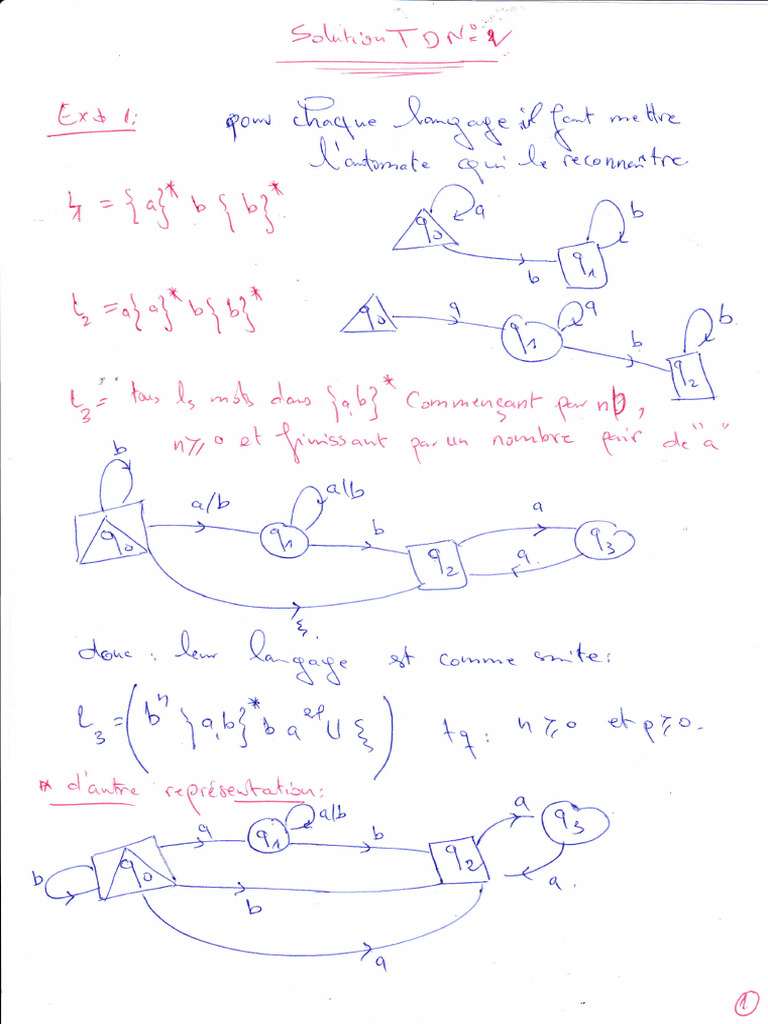 Solution TD N°2
Exo 1: pour chaque langage, il faut mettre
l'automate qui le reconnaître
L1 = {a}* b {b}*
q0 a b q1 b
L2 = a{a}* b{b}*
q0 a q1 a b q2 b
L3 = tous les mots dans {a,b}* Commençant par nb,
n ≥ 0 et finissant par un nombre pair de "a"
b
q0 a/b q1 a/b b q2 a q3 a
ξ
donc : leur langage est comme suite :
L3 = (b^n {a,b}* b a^2p U ξ) tq : n ≥ 0 et p ≥ 0.
* d'autre représentation :
b q0 a q1 a/b b q2 a q3
b a.
a
1